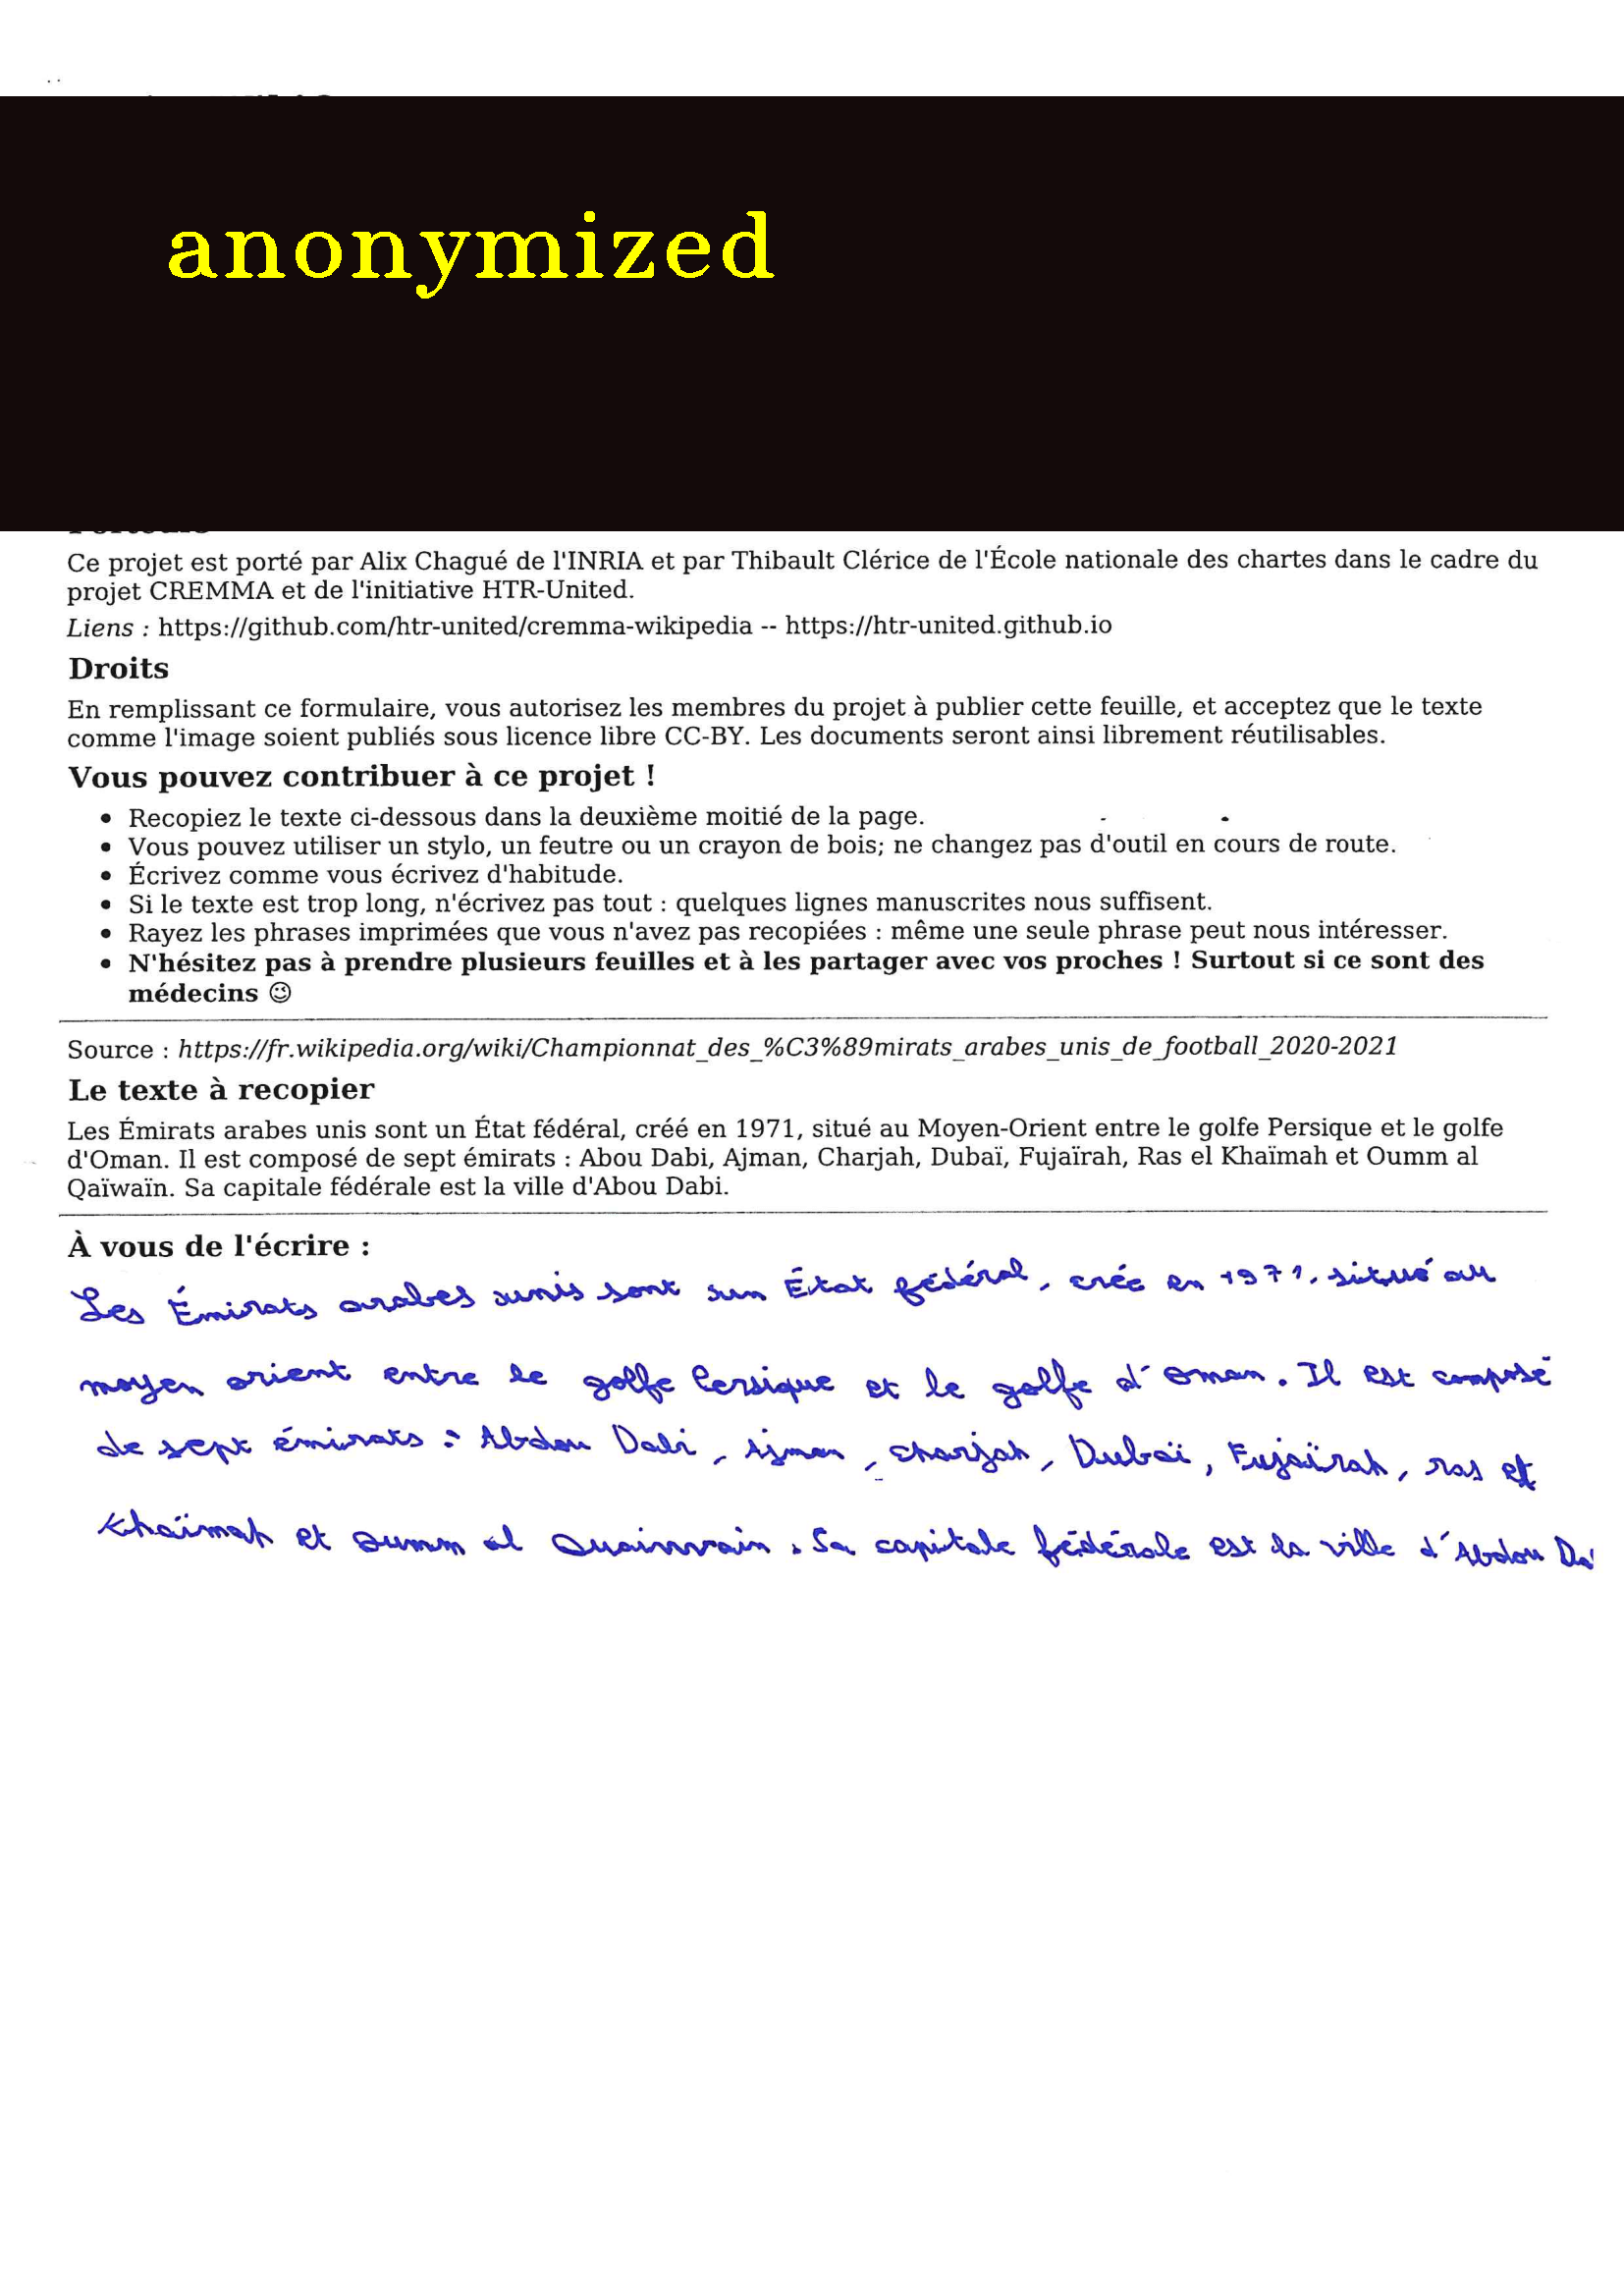 anonymized
Ce projet est porté par Alix Chagué de l'INRIA et par Thibault Clérice de l'École nationale des chartes dans le cadre du
projet CREMMA et de l'initiative HTR-United.
Liens : https://github.com/htr-united/cremma-wikipedia -- https://htr-united.github.io
Droits
En remplissant ce formulaire, vous autorisez les membres du projet à publier cette feuille, et acceptez que le texte
comme l'image soient publiés sous licence libre CC-BY. Les documents seront ainsi librement réutilisables.
Vous pouvez contribuer à ce projet !
• Recopiez le texte ci-dessous dans la deuxième moitié de la page.
• Vous pouvez utiliser un stylo, un feutre ou un crayon de bois; ne changez pas d'outil en cours de route.
• Écrivez comme vous écrivez d'habitude.
• Si le texte est trop long, n'écrivez pas tout : quelques lignes manuscrites nous suffisent.
• Rayez les phrases imprimées que vous n'avez pas recopiées : même une seule phrase peut nous intéresser.
• N'hésitez pas à prendre plusieurs feuilles et à les partager avec vos proches ! Surtout si ce sont des
médecins 😉
Source : https://fr.wikipedia.org/wiki/Championnat_des_%C3%89mirats_arabes_unis_de_football_2020-2021
Le texte à recopier
Les Émirats arabes unis sont un État fédéral, créé en 1971, situé au Moyen-Orient entre le golfe Persique et le golfe
d'Oman. Il est composé de sept émirats : Abou Dabi, Ajman, Charjah, Dubaï, Fujaïrah, Ras el Khaïmah et Oumm al
Qaïwaïn. Sa capitale fédérale est la ville d'Abou Dabi.
À vous de l'écrire :
Les Émirats arabes unis sont un État fédéral, crée en 1971, situé au
moyen orient entre le golfe Persique et le golfe d'Oman. Il est composé
de sept émirats : Abdou Dabi, Ajman, Charjah, Dubaï, Fujaïrah, ras el
Khaïmah et Oumm al Quainwain. Sa capitale fédérale est la ville d'Abdou Da